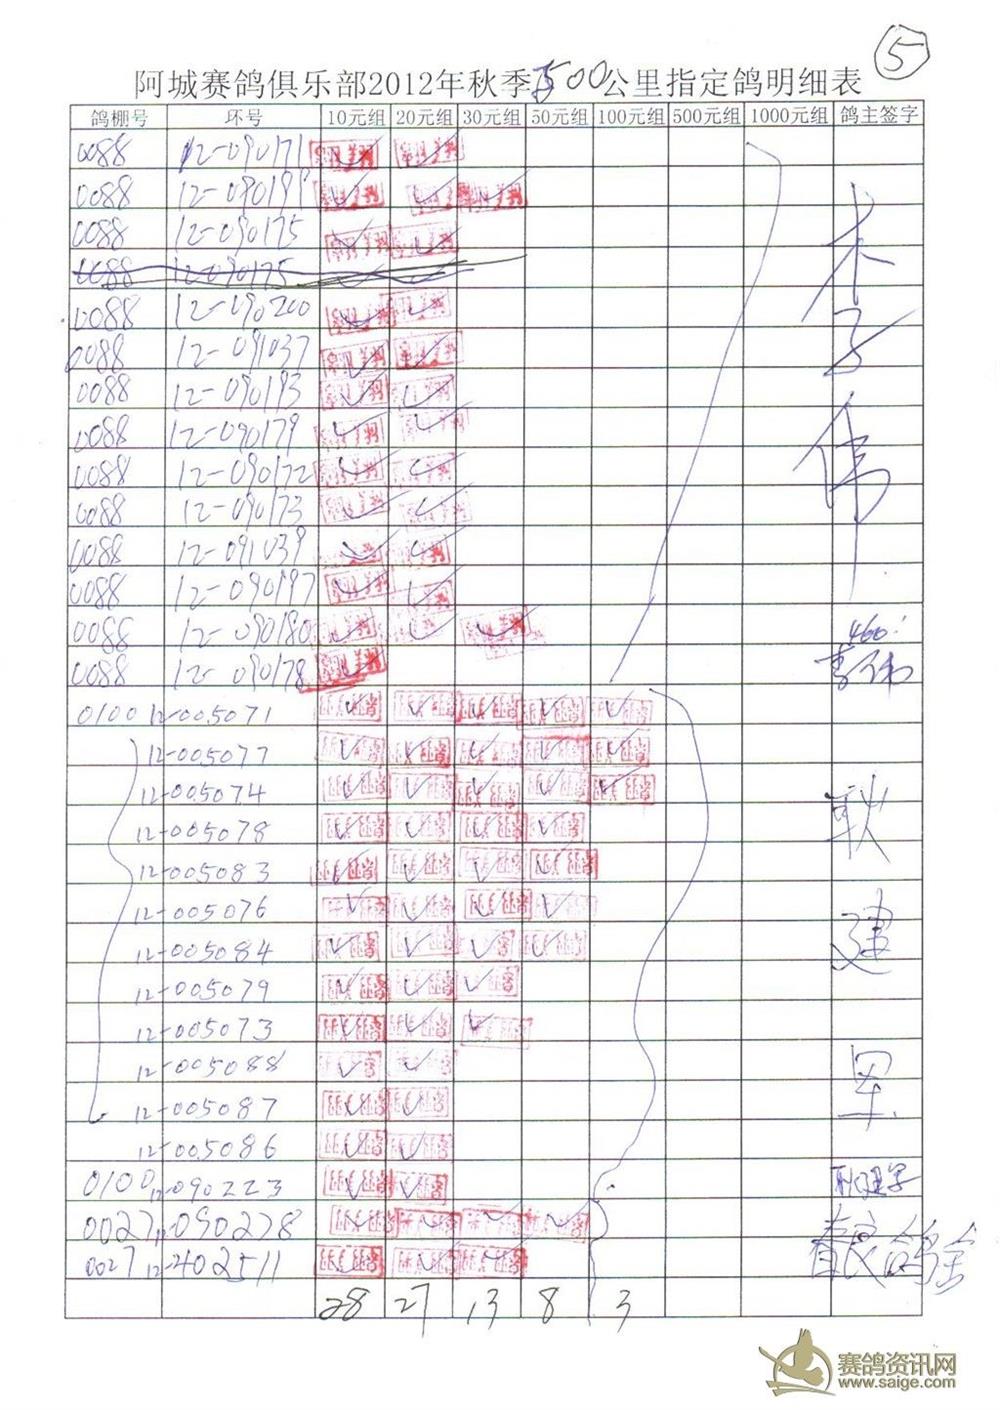 5
阿城赛鸽俱乐部2012年秋季500公里指定鸽明细表
鸽棚号 环号 10元组 20元组 30元组 50元组 100元组 500元组 1000元组 鸽主签字
0088 12-090171
0088 12-090191
0088 12-090175
0088 12-090175
0088 12-090200
0088 12-091037
0088 12-090193
0088 12-090179
0088 12-090172
0088 12-090173
0088 12-091039
0088 12-090197
0088 12-090180
0088 12-090178
木子伟
460
李伟
0100 12-005071
12-005077
12-005074
12-005078
12-005083
12-005076
12-005084
12-005079
12-005073
12-005088
12-005087
12-005086
耿建军
0100 12-090223 耿建军
0027 12-090278
0027 12-402511
28 27 13 8 3
赛鸽资讯网
www.saige.com